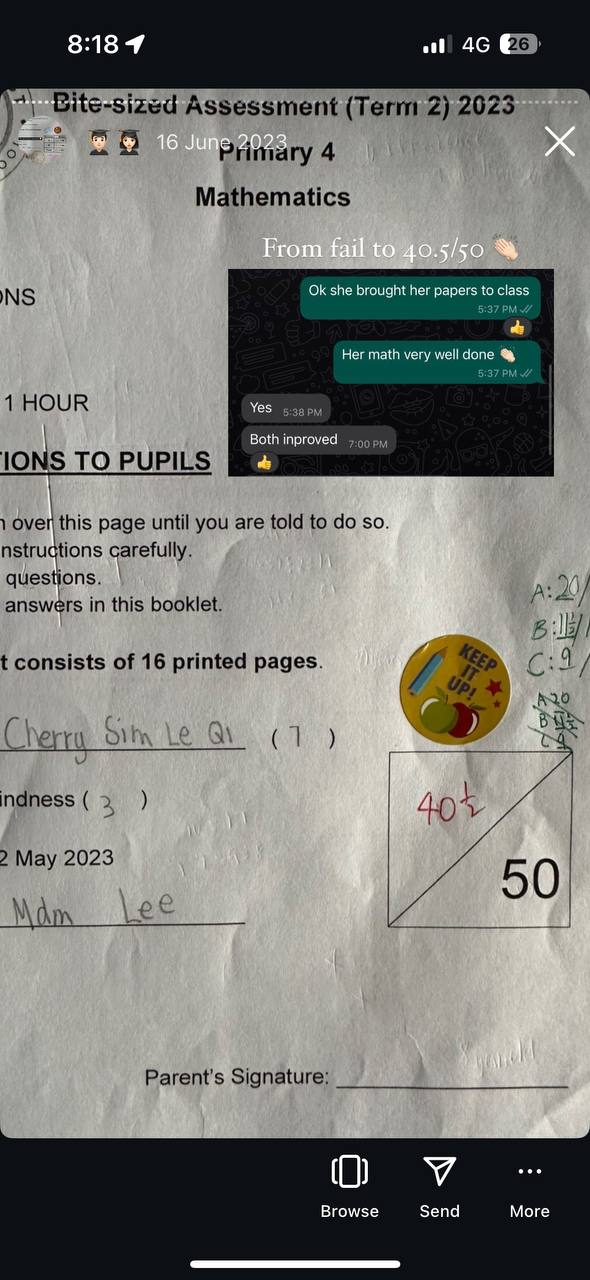 8:18
4G 26
Bite-sized Assessment (Term 2) 2023
16 June 2023
Primary 4
Mathematics
From fail to 40.5/50 👏🏻
ONS
Ok she brought her papers to class
5:37 PM
👍
Her math very well done 👏🏻
5:37 PM
1 HOUR
Yes 5:38 PM
Both inproved 7:00 PM
👍
IONS TO PUPILS
n over this page until you are told to do so.
nstructions carefully.
questions.
answers in this booklet.
A: 20/
B: 11½/
C: 9/
t consists of 16 printed pages.
KEEP
IT
UP!
A 20
Cherry Sim Le Qi (7)
indness (3)
40½
2 May 2023
50
Mdm Lee
Parent's Signature:
Browse Send More